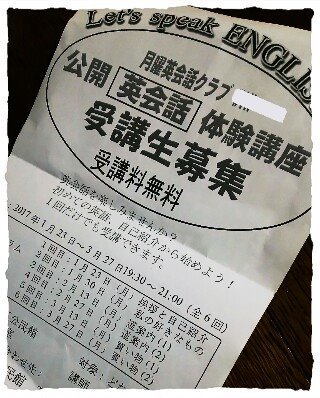 Let's speak ENGLIS
月曜英会話クラブ
公開 英会話 体験講座
受講生募集
受講料無料
英会話を楽しみませんか？
初めての英語、自己紹介から始めよう！
1回だけでも受講できます。
2017年1月23日～3月27日19:30～21:00（全6回）
1回目：1月23日（月）挨拶と自己紹介
2回目：1月30日（月）私の好きなもの
3回目：2月13日（月）道案内(1)
月（月）道案内(2)
月（月）買い物(1)
6回目：3月27日（月）買い物(2)
公民館
対象
講師